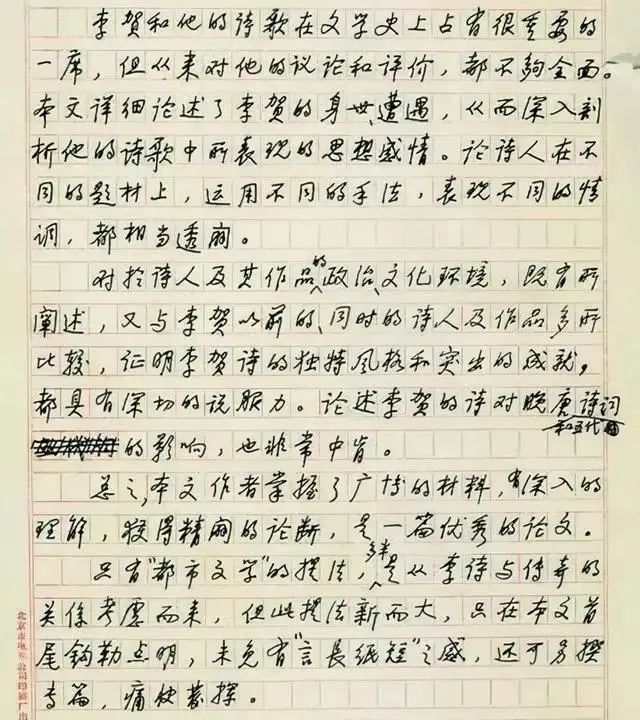 李贺和他的诗歌在文学史上占有很重要的
一席，但从来对他的议论和评价，都不够全面。
本文详细论述了李贺的身世、遭遇，从而深入剖
析他的诗歌中所表现的思想感情。论诗人在不
同的题材上，运用不同的手法，表现不同的情
调，都相当透阔。
对於诗人及其作品的政治、文化环境，既有所
阐述，又与李贺以前的、同时的诗人及作品多所
比较，证明李贺诗的独特风格和突出的成就，
都具有深切的说服力。论述李贺的诗对晚唐诗词
和五代
的影响，也非常中肯。
总之，本文作者掌握了广博的材料，有深入的
理解，获得精阔的论断，是一篇优秀的论文。
只有“都市文学”的提法，多半是从李诗与传奇的
关系考虑而来，但此提法新而大，只在本文首
尾钩勒点明，未免有“言长纸短”之感，还可另撰
专篇，痛快发挥。
北京市电车公司印刷厂出